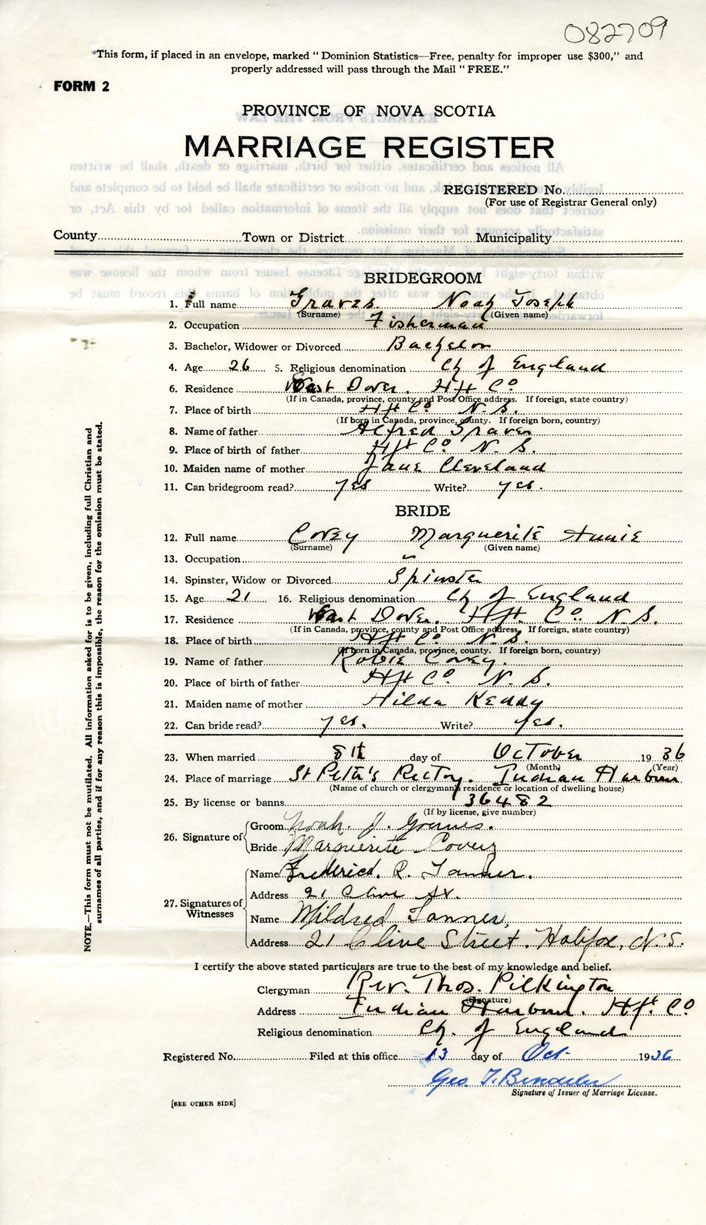 082709
"This form, if placed in an envelope, marked "Dominion Statistics—Free, penalty for improper use $300," and
properly addressed will pass through the Mail "FREE."
FORM 2
PROVINCE OF NOVA SCOTIA
MARRIAGE REGISTER
REGISTERED No.
(For use of Registrar General only)
County Town or District Municipality
BRIDEGROOM
1. Full name Graves Noah Joseph
(Surname) (Given name)
2. Occupation Fisherman
3. Bachelor, Widower or Divorced Bachelor
4. Age 26 5. Religious denomination Ch of England
6. Residence East Dover. Hfx Co
(If in Canada, province, county and Post Office address. If foreign, state country)
7. Place of birth Hfx Co N.S.
(If born in Canada, province, county. If foreign born, country)
8. Name of father Alfred Graves
9. Place of birth of father Hfx Co N.S.
10. Maiden name of mother Jane Cleveland
11. Can bridegroom read? yes Write? yes.
BRIDE
12. Full name Covey Marguerite Annie
(Surname) (Given name)
13. Occupation
14. Spinster, Widow or Divorced Spinster
15. Age 21 16. Religious denomination Ch of England
17. Residence East Dover. Hfx. Co. N.S.
(If in Canada, province, county and Post Office address. If foreign, state country)
18. Place of birth Hfx Co N.S.
(If born in Canada, province, county. If foreign born, country)
19. Name of father Robie Covey.
20. Place of birth of father Hfx Co N.S.
21. Maiden name of mother Hilda Keddy
22. Can bride read? yes. Write? yes.
23. When married 8th day of October 1936
(Month) (Year)
24. Place of marriage St Peter's Rectory. Indian Harbour
(Name of church or clergyman's residence or location of dwelling house)
25. By license or banns 36482
(If by license, give number)
26. Signature of Groom Noah. J. Graves.
Bride Marguerite Covey
27. Signatures of Witnesses Name Frederick. R. Tanner.
Address 21 Clive St.
Name Mildred Tanner,
Address 21 Clive Street. Halifax, N.S.
I certify the above stated particulars are true to the best of my knowledge and belief.
Clergyman Rev. Thos. Pilkington
(Signature)
Address Indian Harbour. Hfx. Co
Religious denomination Ch. of England
Registered No. Filed at this office 13 day of Oct. 1936
Geo. T.
Signature of Issuer of Marriage License.
[SEE OTHER SIDE]
NOTE.—This form must not be mutilated. All information asked for is to be given, including full Christian and
surnames of all parties, and if for any reason this is impossible, the reason for the omission must be stated.